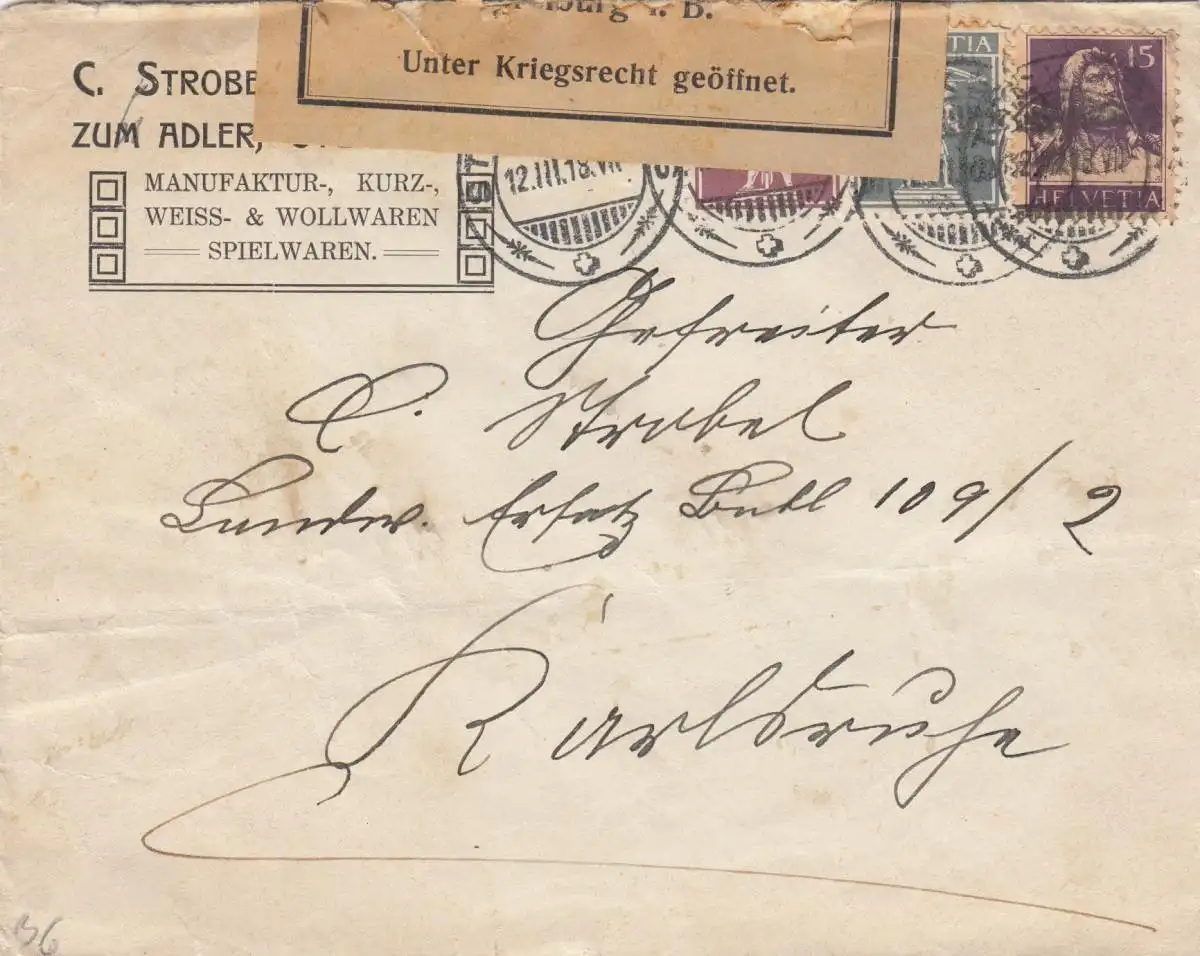 i. B.
Unter Kriegsrecht geöffnet.
C. STROBE
ZUM ADLER,
MANUFAKTUR-, KURZ-,
WEISS- & WOLLWAREN
SPIELWAREN.
12.III.18.VII
TIA
15
HELVETIA
Gefreiter
C. Strobel
Landw. Ersatz Batl 109/2
Karlsruhe
36